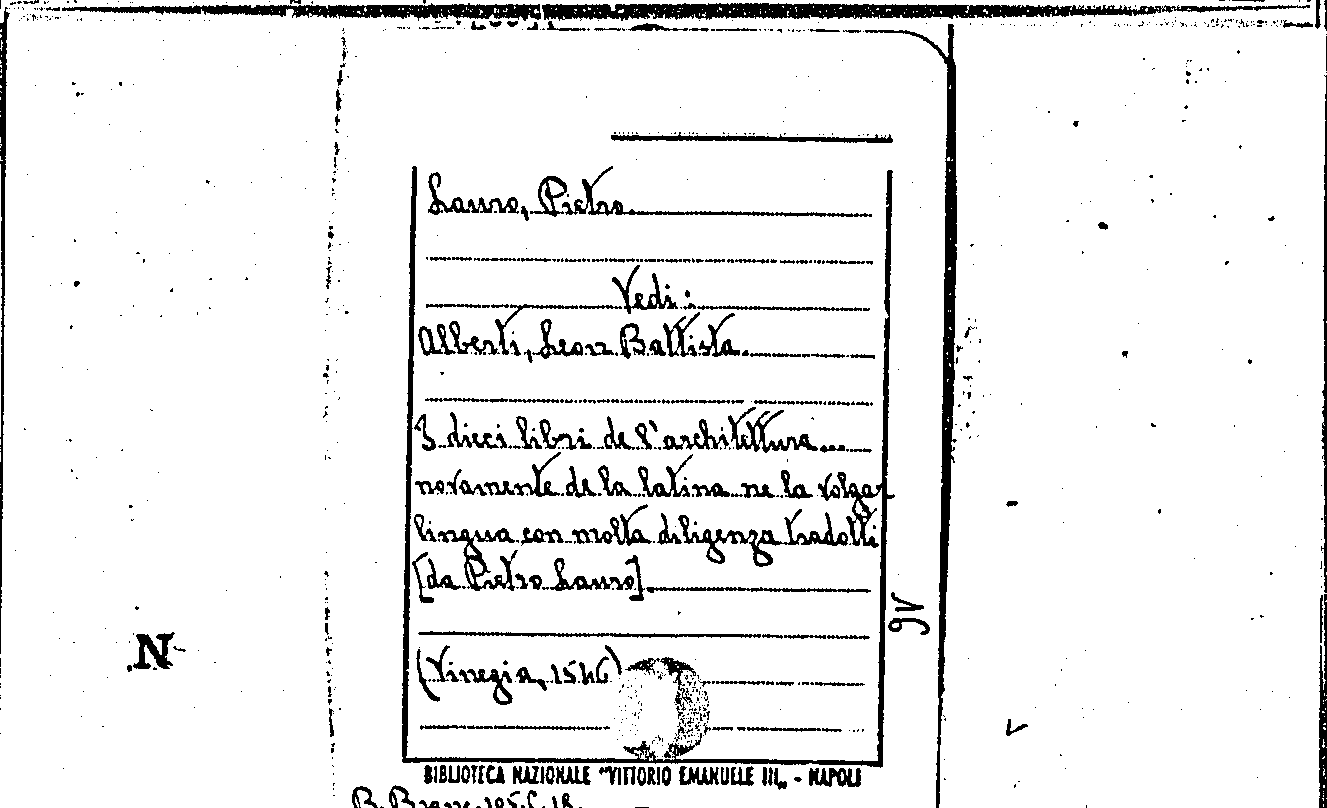 Lauro, Pietro.
Vedi:
Alberti, Leon Battista.
I dieci libri de l'architettura...
novamente de la latina ne la volgar
lingua con molta diligenza tradotti
[da Pietro Lauro].
(Vinegia, 1546)
N
BIBLIOTECA NAZIONALE "VITTORIO EMANUELE III„ - NAPOLI